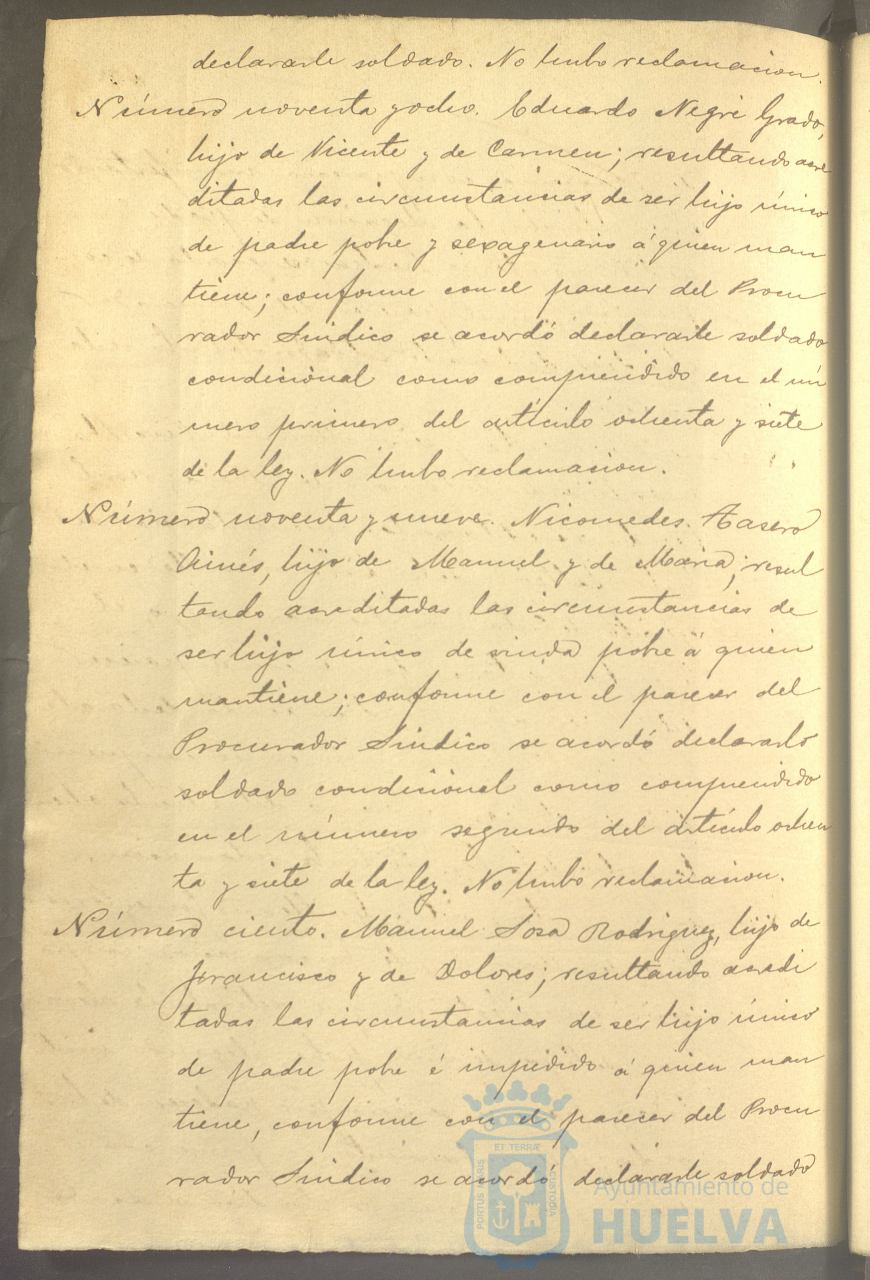 declararle soldado. No hubo reclamacion.
Número noventa y ocho. Eduardo Negre Grado,
hijo de Vicente y de Carmen; resultando acre
ditadas las circunstancias de ser hijo único
de padre pobre y sexagenario á quien man
tiene; conforme con el parecer del Procu
rador Síndico se acordó declararle soldado
condicional como comprendido en el nú
mero primero del artículo ochenta y siete
de la ley. No hubo reclamacion.
Número noventa y nueve. Nicomedes
hijo de Manuel y de Maria; resul
tando acreditadas las circunstancias de
ser hijo único de viuda pobre á quien
mantiene; conforme con el parecer del
Procurador Síndico se acordó declararlo
soldado condicional como comprendido
en el número segundo del artículo ochen
ta y siete de la ley. No hubo reclamacion.
Número ciento. Manuel Sosa Rodriguez, hijo de
Francisco y de Dolores; resultando acredi
tadas las circunstancias de ser hijo único
de padre pobre é impedido á quien man
tiene, conforme con el parecer del Procu
rador Síndico se acordó declararle soldado
ET TERRÆ
PORTUS MARIS
CUSTODIA
Ayuntamiento de
HUELVA